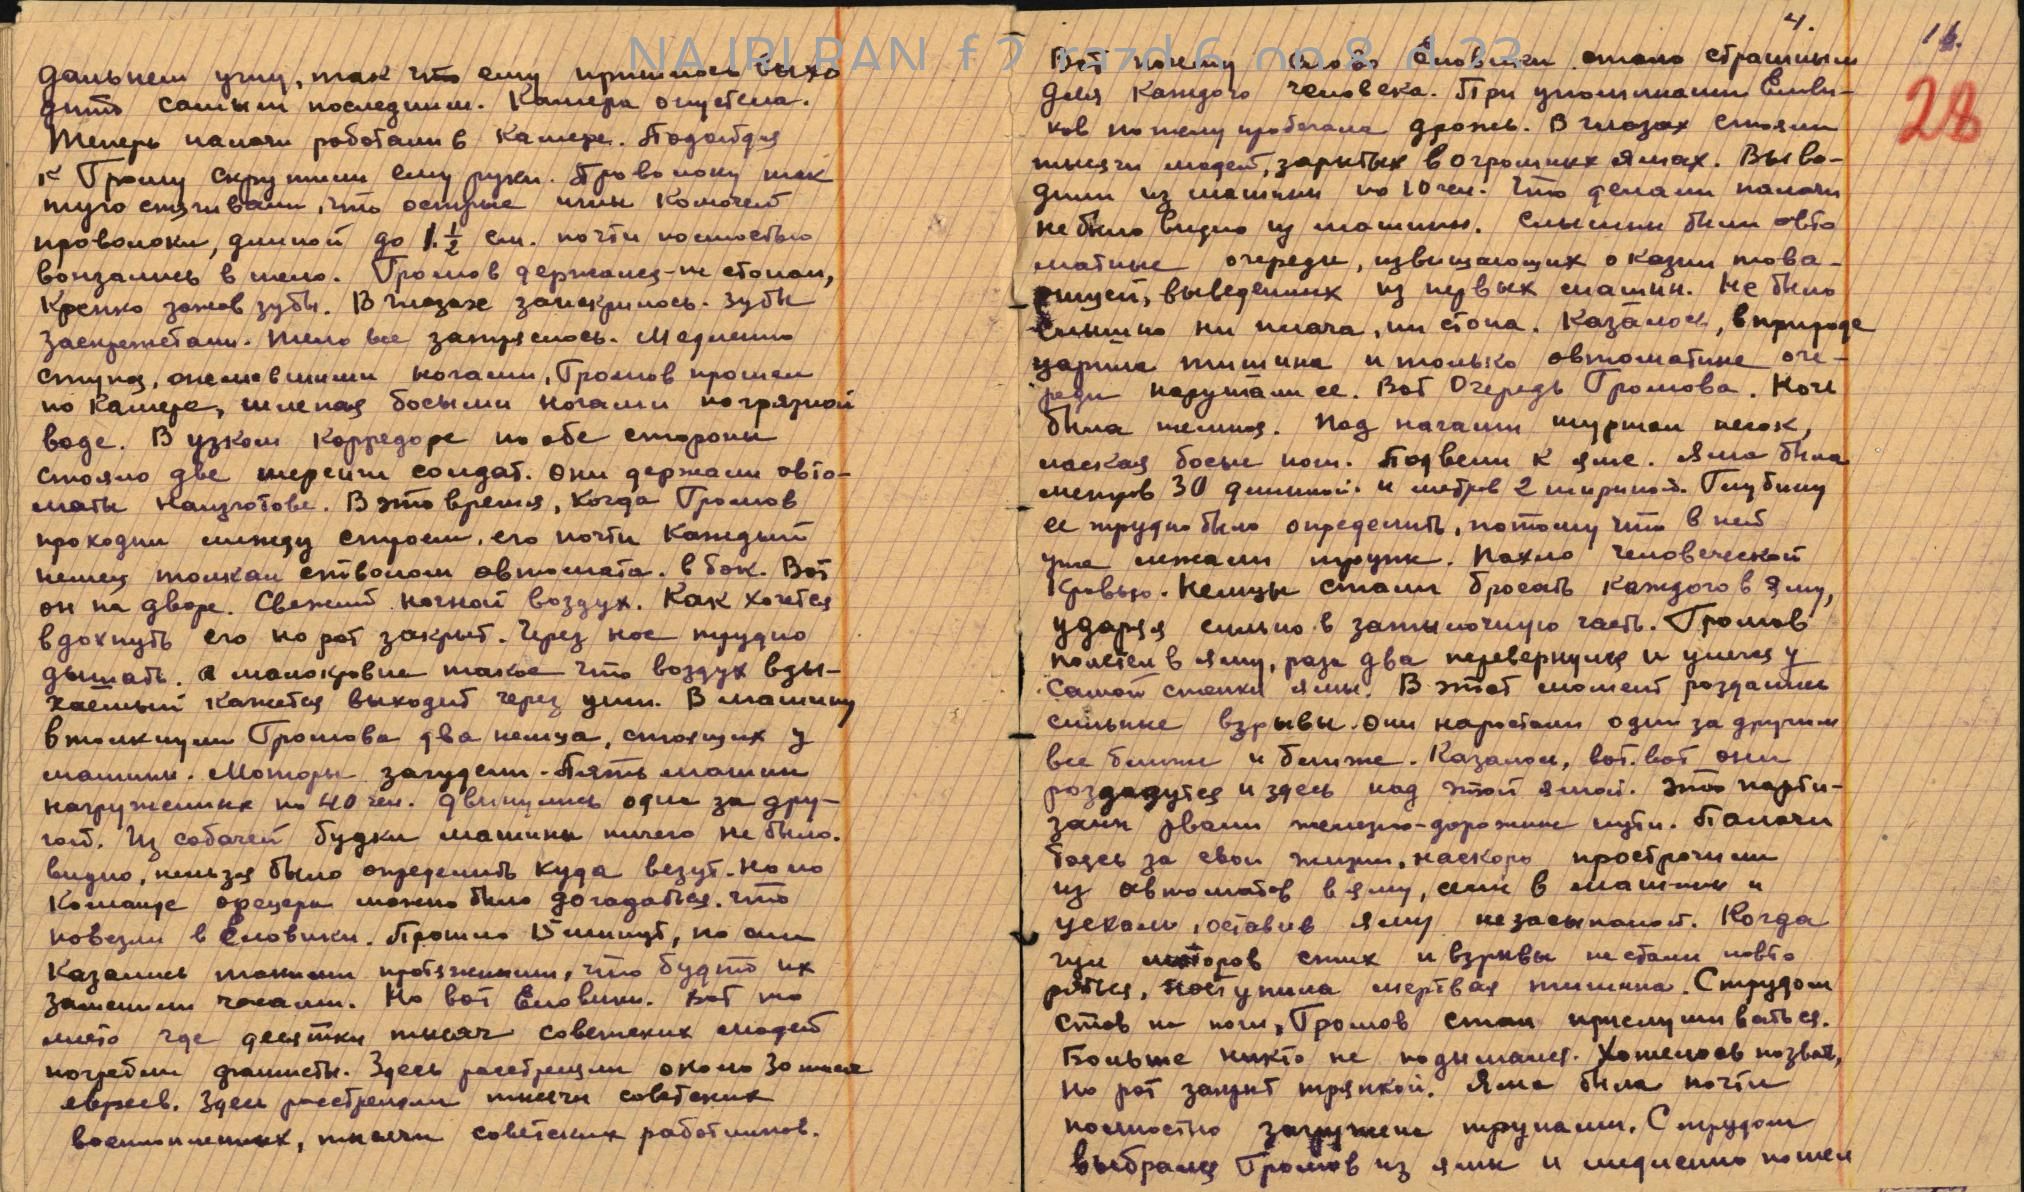 дальнем углу, так что ему пришлось выхо
дить самым последним. Камера опустела.
Теперь палачи работали в камере. Подойдя
к Грому скрутили ему руки. Проволоку так
туго стягивали, что острые иглы колючей
проволоки, длиной до 1 1/2 см. почти полностью
вонзались в тело. Громов держался - не стонал,
крепко зажав зубы. В глазах заискрилось. Зубы
заскрежетали. Тело все затряслось. Медленно
ступая, онемевшими ногами, Громов прошел
по камере, шлепая босыми ногами по грязной
воде. В узком корредоре по обе стороны
стояло две шеренги солдат. Они держали авто-
маты наизготове. В это время, когда Громов
проходил между строем, его почти каждый
немец толкал стволом автомата. в бок. Вот
он на дворе. Свежий ночной воздух. Как хочется
вдохнуть его но рот закрыт. Через нос трудно
дышать. а малокровие такое что воздух вды-
хаемый кажется выходит через уши. В машину
втолкнули Громова два немца, стоящих у
машины. Моторы загудели. Пять машин
нагруженных по 40 чел. двинулись одна за дру-
гой. Из собачей будки машины ничего не было.
видно, нельзя было определить куда везут. Но по
команде офецера можно было догадаться. что
повезли в Еловики. Прошло 15 минут, но они
казались такими протяжными, что будто их
заменили часами. Но вот Еловики. Вот то
место где десятки тысяч советских людей
погребли фашисты. Здесь расстреляли около 30 тысяч
евреев. Здесь расстреляли тысячи советских
военнопленных, тысячи советских работников.
4.
16.
28
NA IRI RAN f 2 razd 6 op 8 d 23
Вот почему слово Еловики стало страшным
для каждого человека. При упоминании Елови-
ков по телу пробегала дрожь. В глазах стояли
тысячи людей, зарытых в огромных ямах. Выво-
дили из машины по 10 чел. Что делали палачи
не было видно из машины. Слышны были авто
матные очереди, извещающих о казни това-
рищей, выведенных из первых машин. Не было
слышно ни плача, ни стона. Казалось, в природе
царила тишина и только автоматные оче-
реди нарушали ее. Вот очередь Громова. Ночь
была темная. Под ногами шуршал песок,
лаская босые ноги. Подвели к яме. Яма была
метров 30 длинной. и метров 2 шириной. Глубину
ее трудно было определить, потому что в ней
уже лежали трупы. Пахло человеческой
кровью. Немцы стали бросать каждого в яму,
ударяя сильно в затылочную часть. Громов
полетел в яму, раза два перевернулся и улегся у
самой стенки ямы. В этот момент раздались
сильные взрывы. Они наростали один за другим
все ближе и ближе. Казалось, вот. вот они
роздадутся и здесь над этой ямой. Это парти-
заны рвали железно-дорожные пути. Палачи
боясь за свои жизни, наскоро прострочили
из автоматов в яму, сели в машины и
уехали, оставив яму не засыпаной. Когда
гул моторов стих и взрывы не стали повто
ряться, наступила мертвая тишина. С трудом
став на ноги, Громов стал прислушиваться.
Больше никто не подымался. Хотелось позвать,
но рот закрыт тряпкой. Яма была почти
полностью загружена трупами. С трудом
выбрался Громов из ямы и медленно пошел